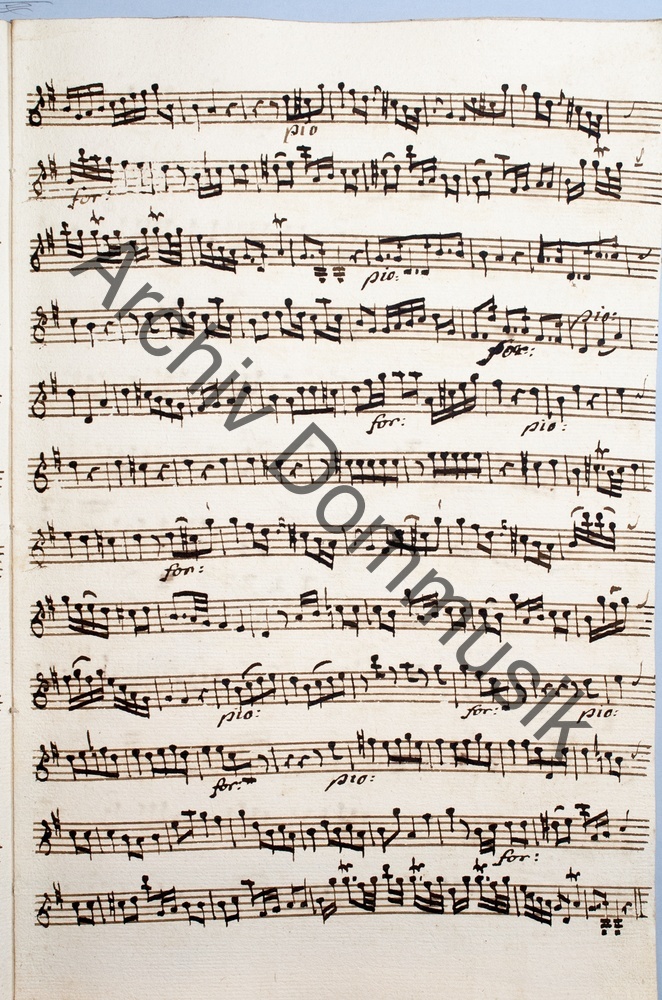 pio
for:
pio:
pio:
for:
for:
pio:
for:
pio:
for:
pio:
for:
pio:
for:
Archiv Dommusik